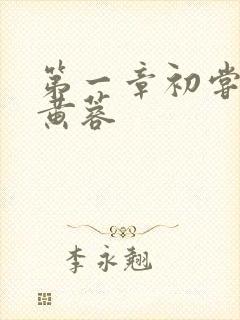 第一章初尝
黄蓉
李永翘